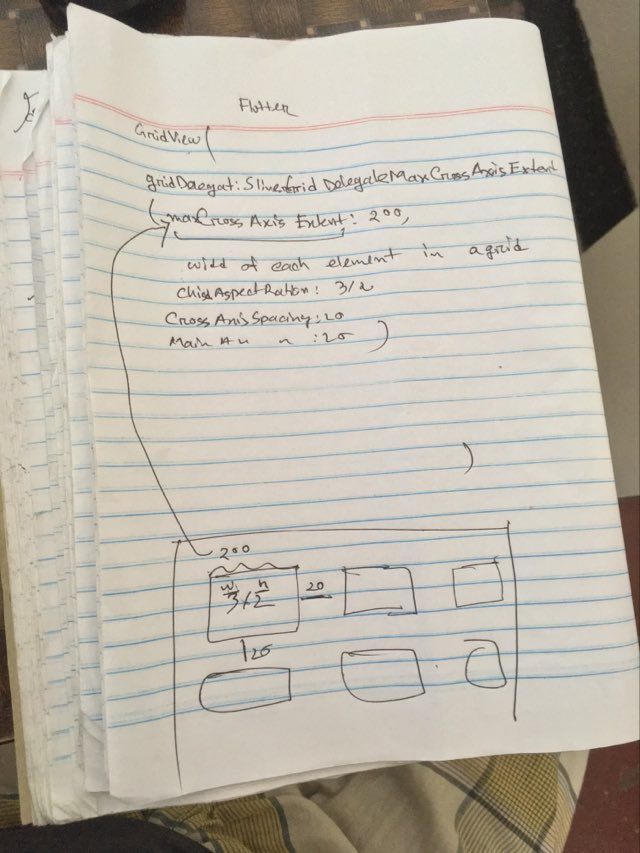 Flutter
GridView(
gridDelegat: SliverGrid DelegateMaxCrossAxisExtent
(maxCross Axis Extent: 200,
widd of each element in a grid
ChildAspectRation: 3/2
Cross Axis Spacing: 20
Main Ax " : 20 )
)
200
w h
3/2
20
20